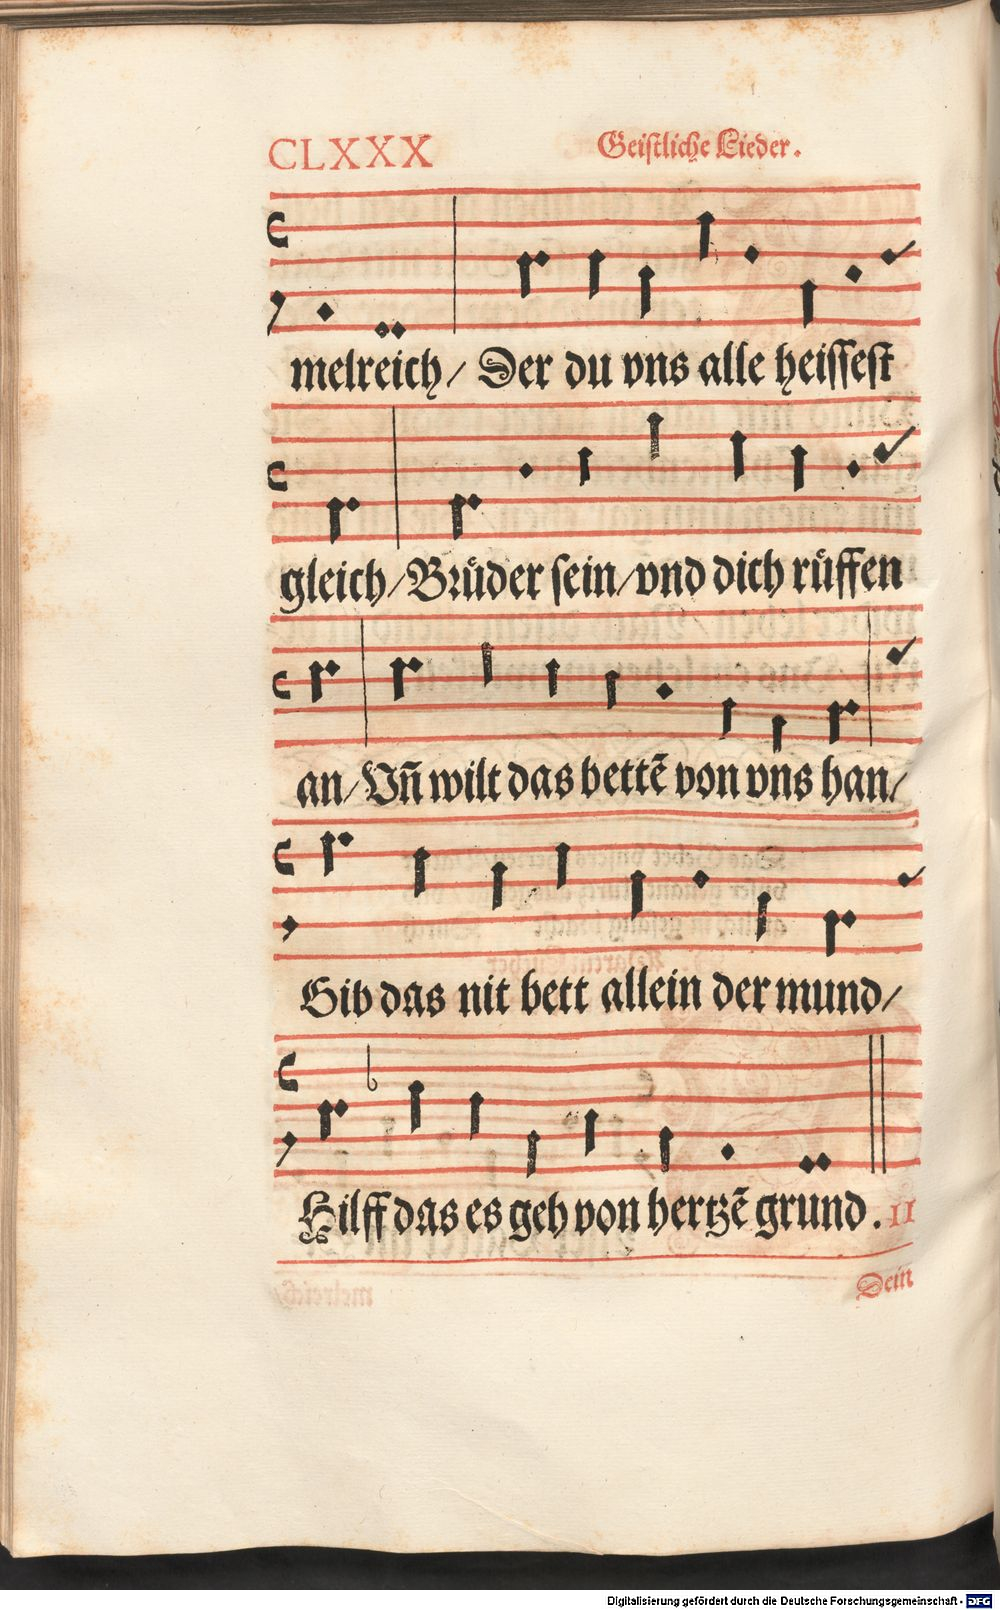 CLXXX Geistliche Lieder.
melreich/ Der du vns alle heissest
gleich/Brůder sein/vnd dich růffen
an/Vñ wilt das bettẽ von vns han/
Gib das nit bett allein der mund/
Hilff das es geh von hertzẽ grund. II
Dein
Digitalisierung gefördert durch die Deutsche Forschungsgemeinschaft - DFG